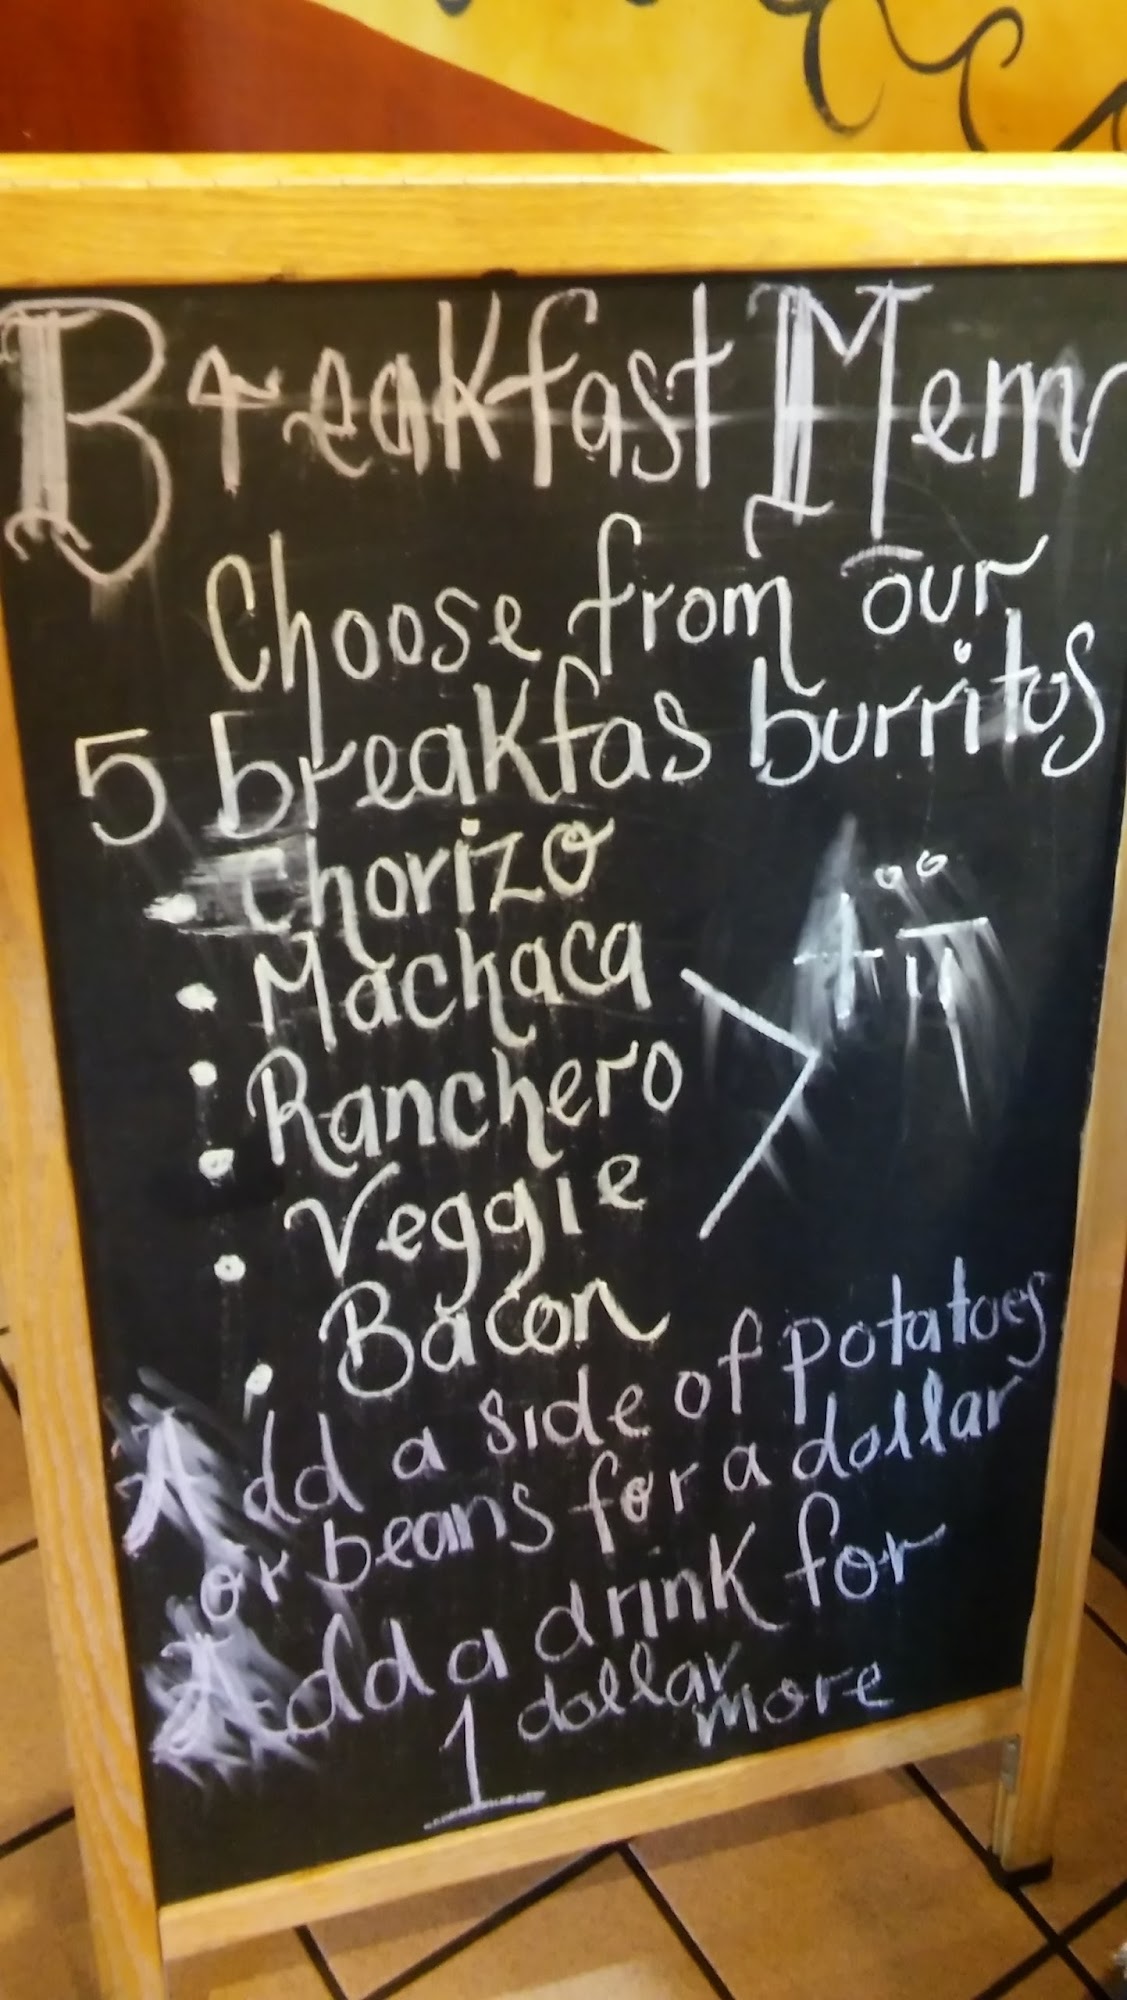 Breakfast Menu
Choose from our
5 breakfas burritos
• Chorizo
• Machaca
• Ranchero
• Veggie
• Bacon
Add a side of potatoes
or beans for a dollar
Add a drink for
1 dollar
more